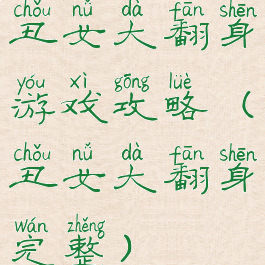 chǒu nǚ dà fān shēn
丑女大翻身
yóu xì gōng lüè
游戏攻略（
chǒu nǚ dà fān shēn
丑女大翻身
wán zhěng
完整）